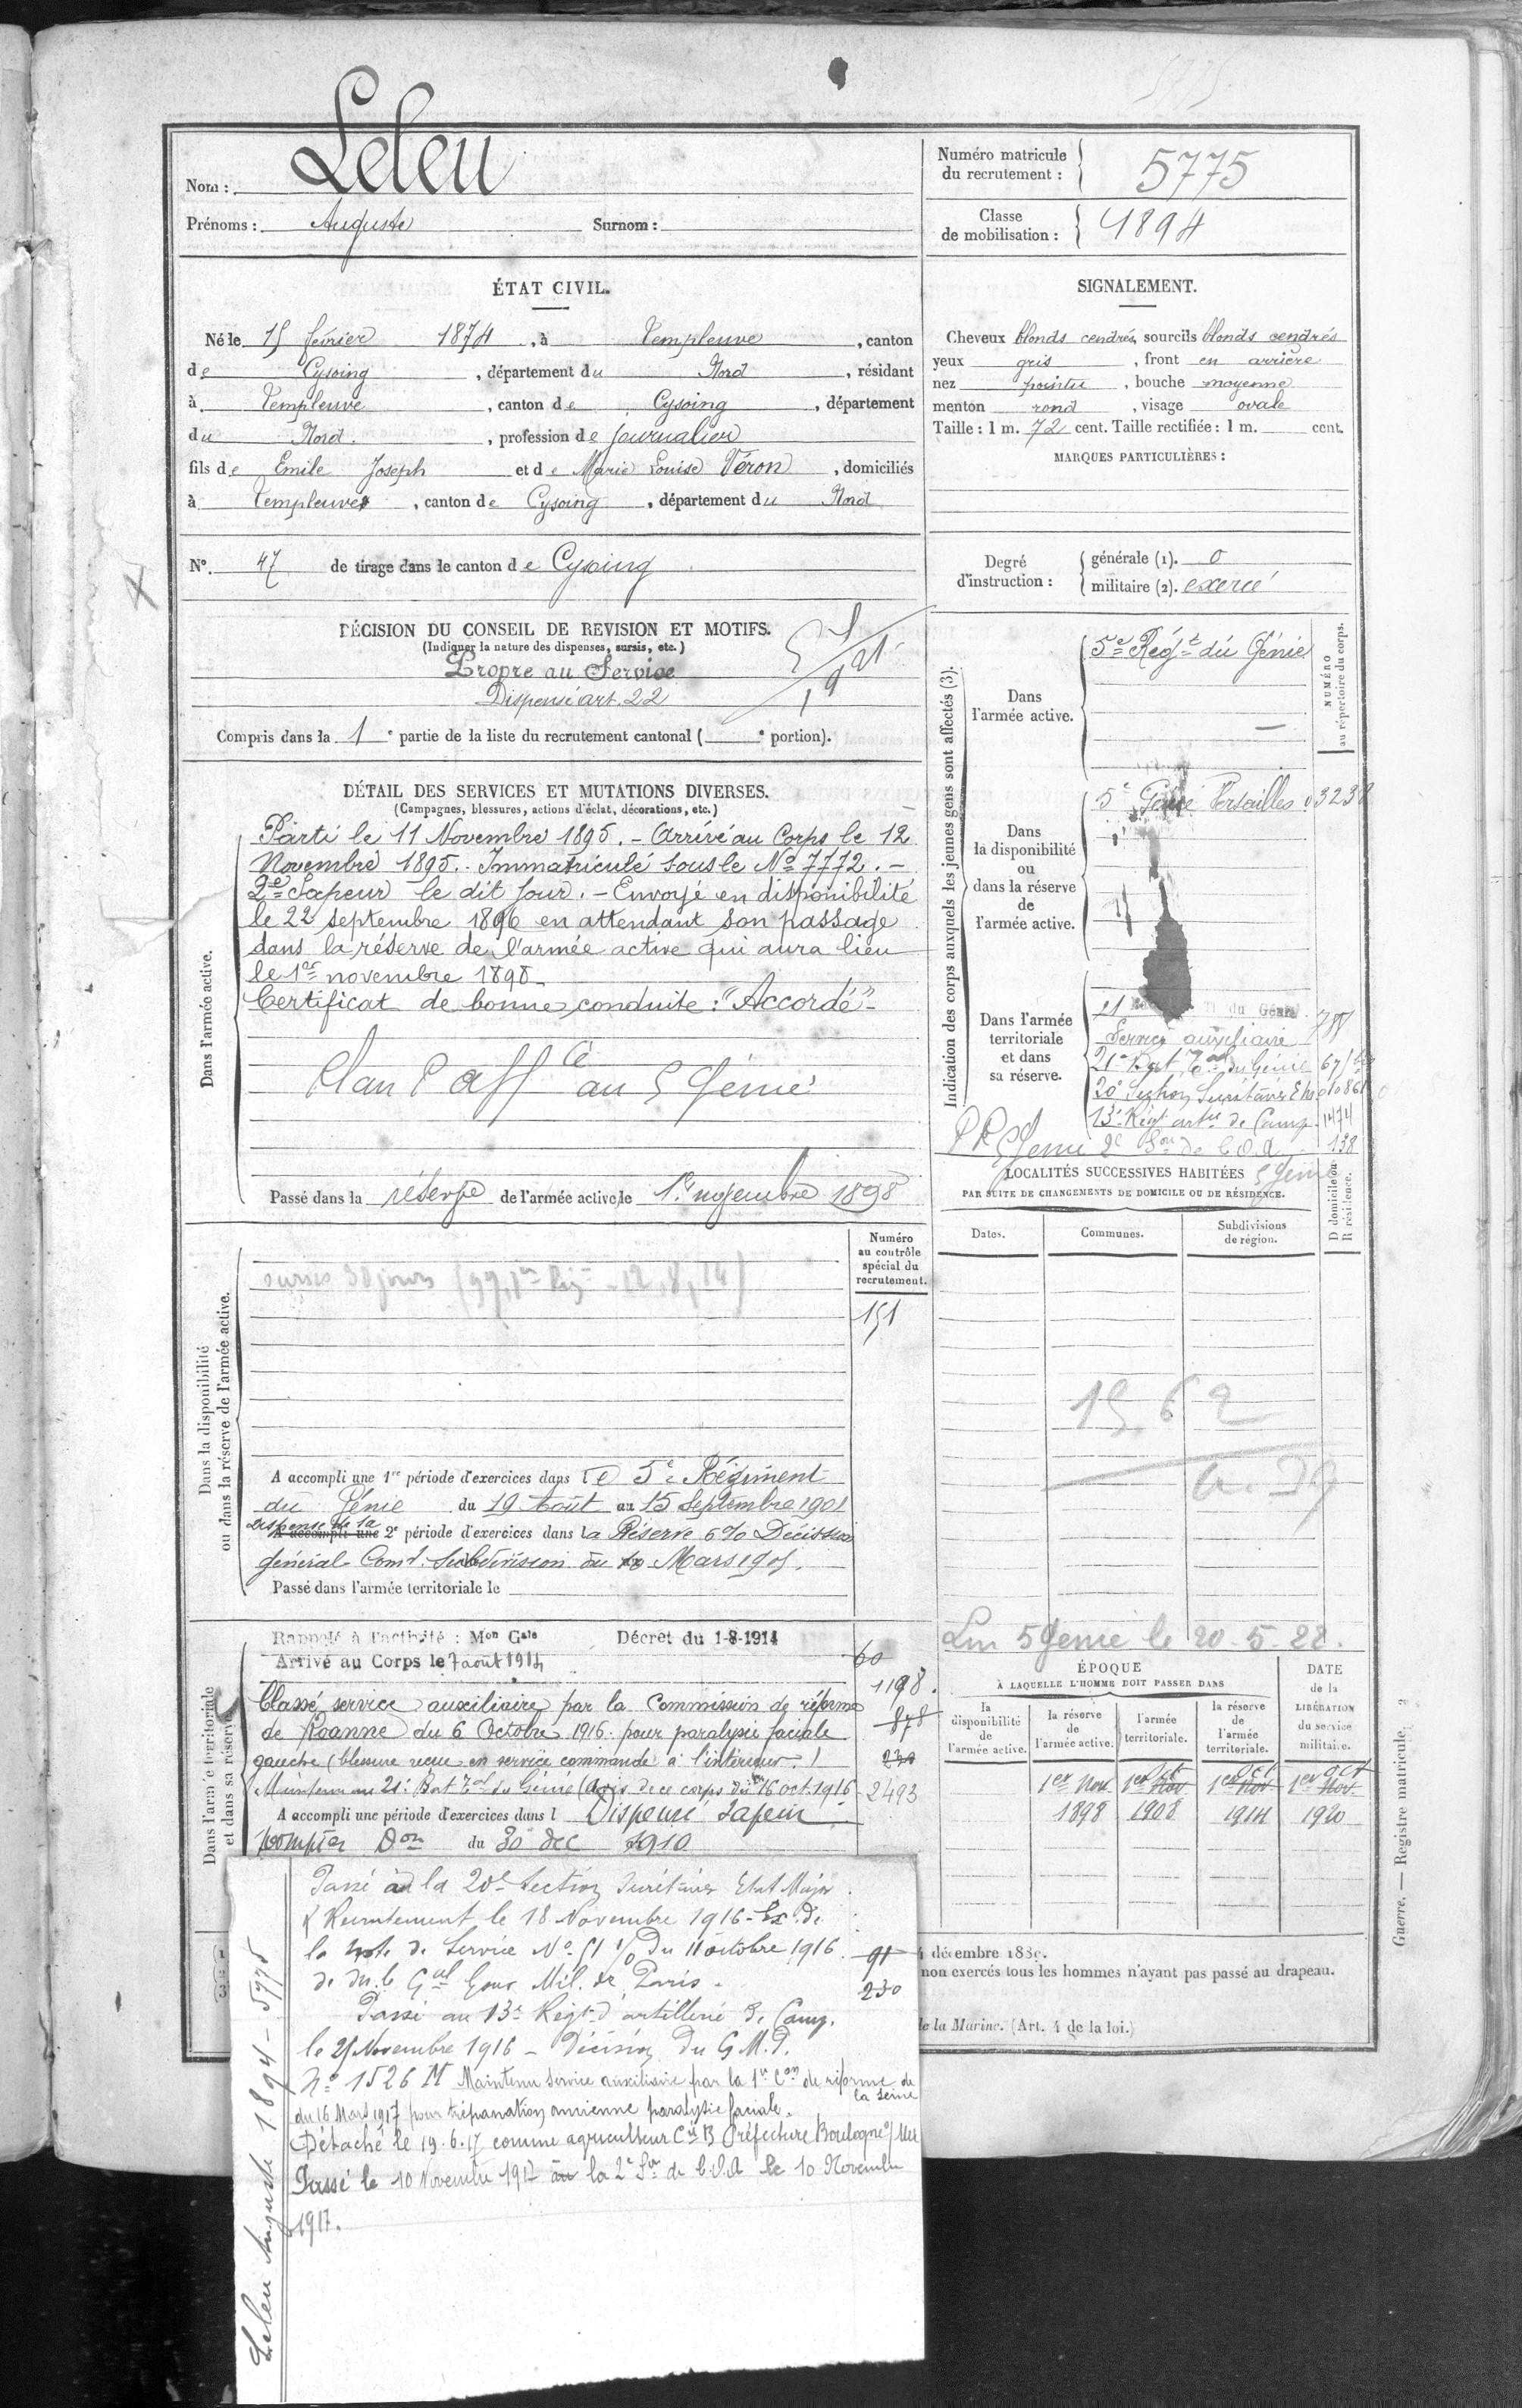 Nom : Leleu
Prénoms : Auguste Surnom :
Numéro matricule du recrutement : 5775
Classe de mobilisation : 1894
ÉTAT CIVIL.
Né le 15 février 1874, à Templeuve, canton
de Cysoing, département du Nord, résidant
à Templeuve, canton de Cysoing, département
du Nord, profession de journalier
fils de Emile Joseph et de Marie Louise Véron, domiciliés
à Templeuve, canton de Cysoing, département du Nord
N° 47 de tirage dans le canton de Cysoing
SIGNALEMENT.
Cheveux blonds cendrés, sourcils blonds cendrés
yeux gris, front en arrière
nez pointu, bouche moyenne
menton rond, visage ovale
Taille : 1 m. 72 cent. Taille rectifiée : 1 m. cent.
MARQUES PARTICULIÈRES :
Degré d'instruction :
générale (1). 0
militaire (2). exercé
DÉCISION DU CONSEIL DE REVISION ET MOTIFS.
(Indiquer la nature des dispenses, sursis, etc.)
Propre au Service
Dispensé art. 22
Compris dans la 1e partie de la liste du recrutement cantonal ( e portion).
DÉTAIL DES SERVICES ET MUTATIONS DIVERSES.
(Campagnes, blessures, actions d'éclat, décorations, etc.)
Dans l'armée active.
Parti le 11 Novembre 1895. - Arrivé au Corps le 12
Novembre 1895. Immatriculé sous le No 7772. -
2e Sapeur le dit jour. - Envoyé en disponibilité
le 22 septembre 1896 en attendant son passage
dans la réserve de l'armée active qui aura lieu
le 1er novembre 1898.
Certificat de bonne conduite : "Accordé" -
Plan P affcé au 5 Génie
Passé dans la réserve de l'armée active le 1er novembre 1898
Indication des corps auxquels les jeunes gens sont affectés (3).
NUMÉRO au répertoire du corps.
Dans l'armée active.
5e Régt du Génie
Dans la disponibilité ou dans la réserve de l'armée active.
5e Génie Versailles 03238
Dans l'armée territoriale et dans sa réserve.
21 du Génie
Service auxiliaire
21e Bat Tal du Génie
20e Section Secrétaires
13e Régt artie de Camp 1474
5 Génie 2e Son de C.O.A 138
5 Génie
LOCALITÉS SUCCESSIVES HABITÉES
PAR SUITE DE CHANGEMENTS DE DOMICILE OU DE RÉSIDENCE.
D domicile ou R résidence.
Dates. Communes. Subdivisions de région.
Numéro au contrôle spécial du recrutement.
151
Dans la disponibilité ou dans la réserve de l'armée active.
sursis 30 jours
A accompli une 1re période d'exercices dans le 5e Régiment
du Génie du 19 Août au 15 Septembre 1901
Dispensé de la
A accompli une 2e période d'exercices dans la Réserve 6% Décision
général Comt Subdivision du Mars 1905.
Passé dans l'armée territoriale le
Dans l'armée territoriale et dans sa réserve
Rappelé à l'activité : Mon Gale Décret du 1-8-1914
Arrivé au Corps le 7 août 1914
Classé service auxiliaire par la Commission de réforme
de Roanne du 6 Octobre 1916 pour paralysie faciale
gauche (blessure reçue en service commandé à l'intérieur.)
Maintenu au 21e Bat Tal du Génie (Avis de ce corps du 16 oct. 1916
A accompli une période d'exercices dans l Dispensé Sapeur
pompier Don du 30 dec 1910
60
1198.
878
230
2493
Lm 5 Génie le 20-5-22.
ÉPOQUE
À LAQUELLE L'HOMME DOIT PASSER DANS
DATE de la LIBÉRATION du service militaire.
la disponibilité de l'armée active.
la réserve de l'armée active.
l'armée territoriale.
la réserve de l'armée territoriale.
1er Nov. 1er Nov Oct 1er Nov Oct 1er Nov. Oct
1898 1908 1914 1920
Passé à la 20e Section Secrétaires Etat Major
& Recrutement le 18 Novembre 1916 - Ex. de
la note de Service No 51 1/0 du 11 octobre 1916
de M. le Gal Gouv. Mil. de Paris.
91
230
Passé au 13e Regt d'artillerie de Camp.
le 25 Novembre 1916 - Décision du G.M.P.
No 1526 M Maintenu service auxiliaire par la 1re Con de réforme de
la Seine
du 16 Mars 1917 pour trépanation ancienne paralysie faciale.
Détaché le 19.6.17 comme agriculteur Cie B Préfecture Boulogne s/ Mer
Passé le 10 Novembre 1917 au la 2e Son de C.O.A le 10 Novembre
1917.
Leleu Auguste 1894 - 5775
décembre 1880.
non exercés tous les hommes n'ayant pas passé au drapeau.
de la Marine. (Art. 4 de la loi.)
Guerre. — Registre matricule. 2